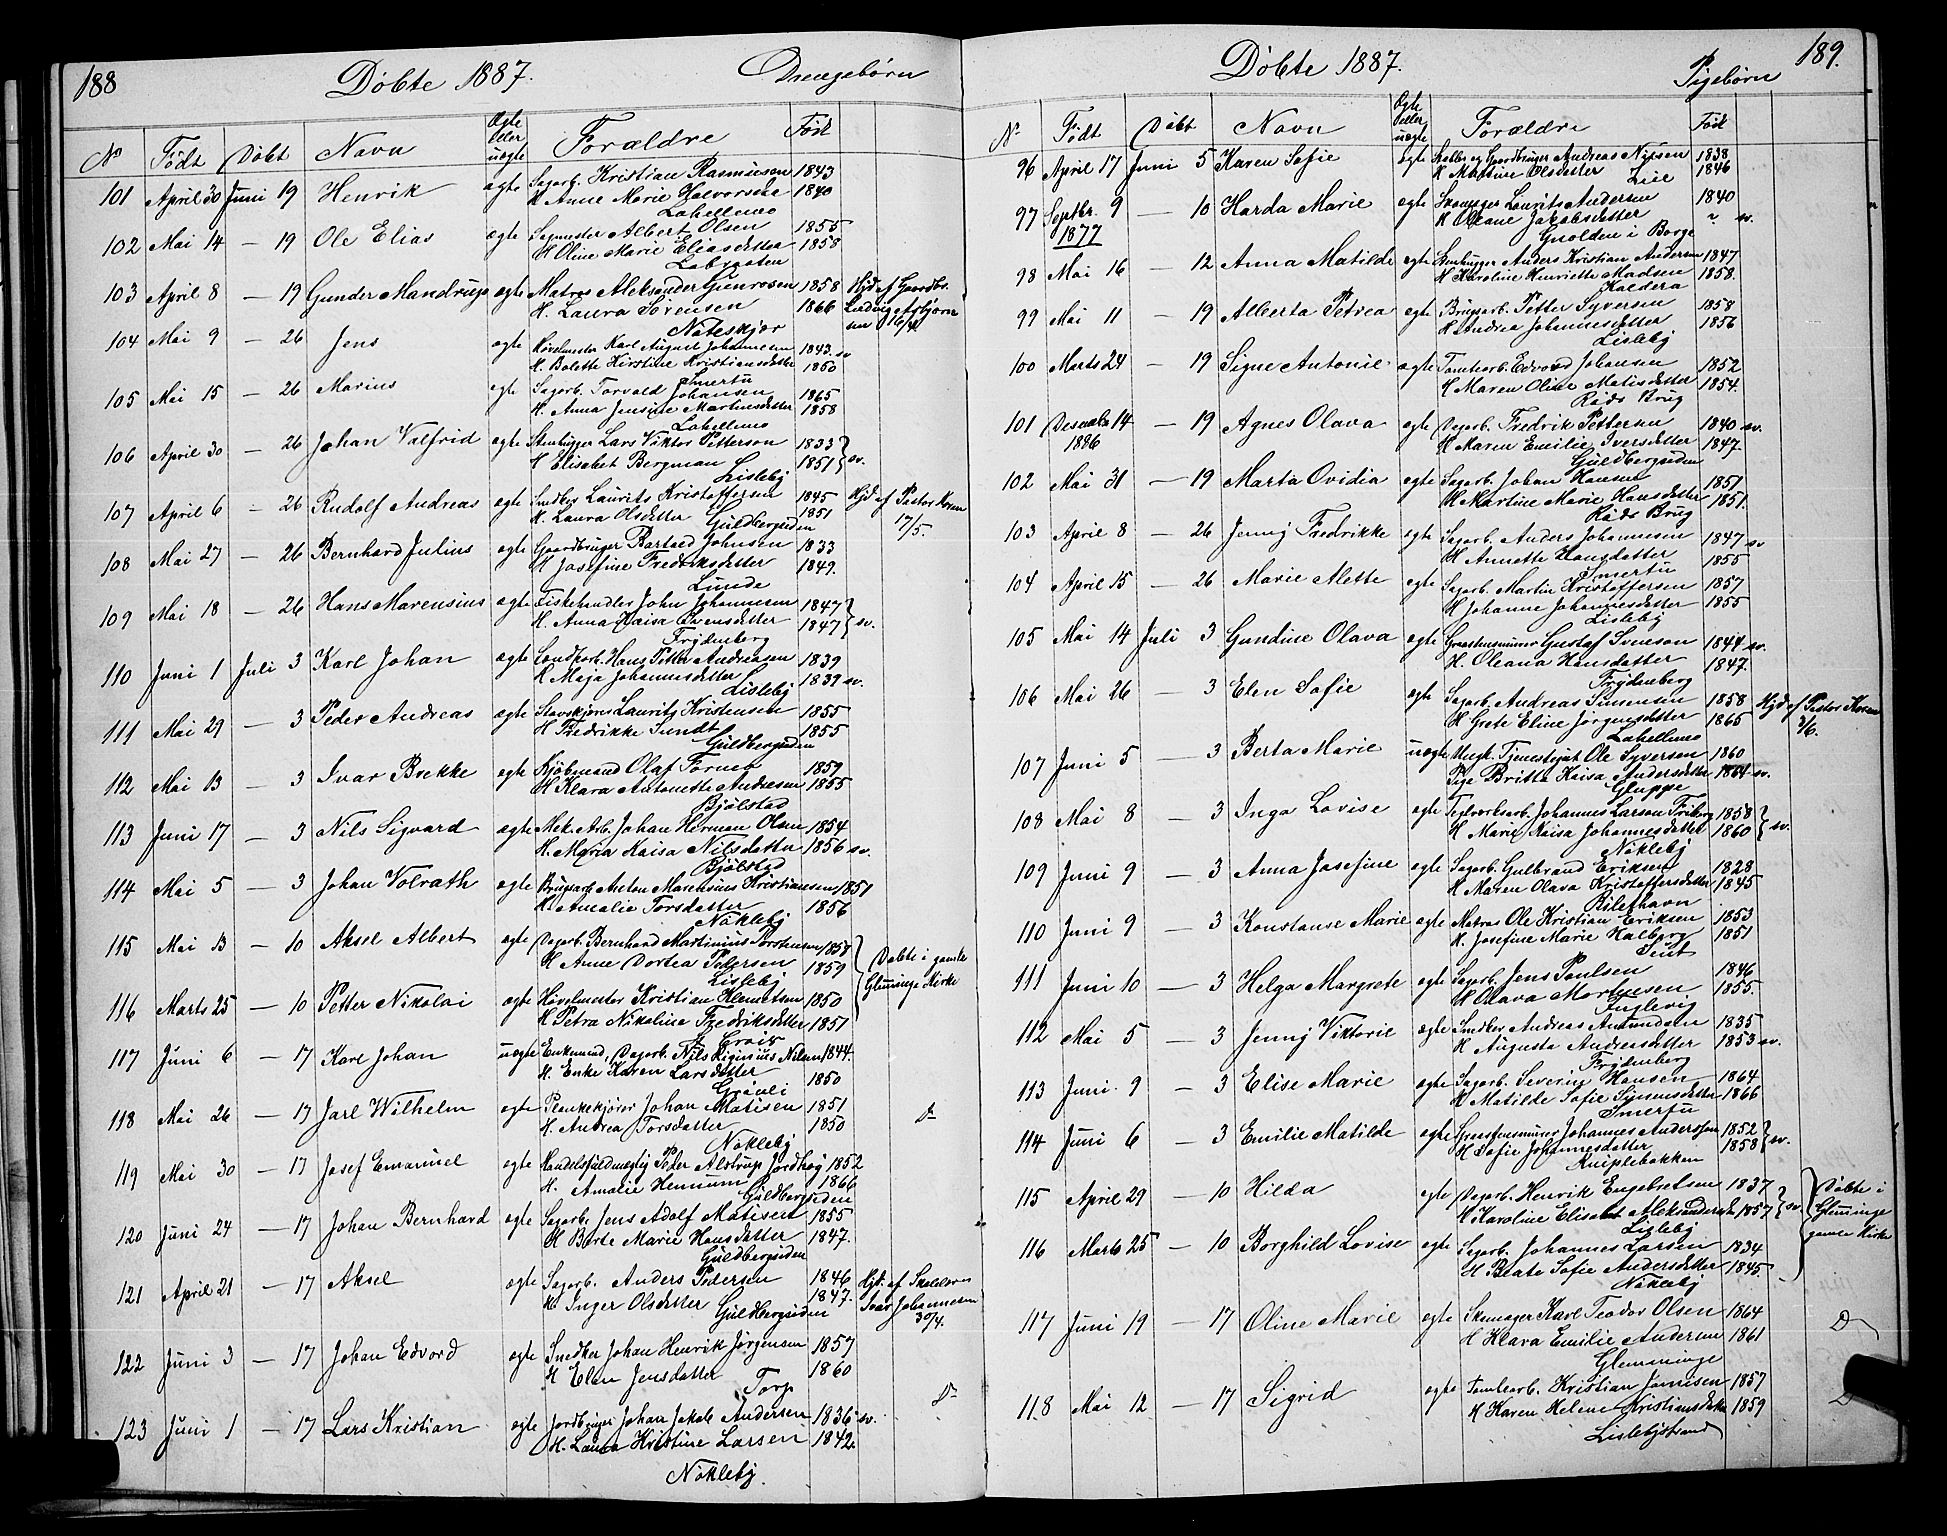 188 Döbte 1887. Drengebørn
No Födt Döbt Navn Ægte eller uægte Forældre Født
101 April 30 Juni 19 Henrik ægte Sagarb. Kristian Rasmussen 1843
H Anne Marie Halvorsen 1840
Lahellemo
102 Mai 14 — 19 Ole Elias ægte Sagmester Albert Olsen 1855
H Oline Marie Eliasdatter 1858
103 April 8 — 19 Gunder Mandrup ægte Matros Aleksander Gunrosen 1858 Hjd af Gaardbr.
H. Laura Sörensen 1866 Ludvig Asbjörn
Näteskjær sen 16/4
104 Mai 9 — 26 Jens ægte Hövelmester Karl August Johannesen 1843 sv
H. Bolette Kirstine Kristiansdatter 1850
Smertu
105 Mai 15 — 26 Marius ægte Sagarb. Torvald Johansen 1865
H. Anna Jensine Martinsdatter 1858
Lahellemo
106 April 30 — 26 Johan Valfrid ægte Stenhugger Lars Viktor Petterson 1833
H Elisabet Bergman 1851 sv.
Lisleby
107 April 6 — 26 Rudolf Andreas ægte Snedker Laurits Kristoffersen 1845 Hjd af Pastor Koren
H. Laura Olsdatter 1851 17/5.
Guldbergsiden
108 Mai 27 — 26 Bernhard Julius ægte Gaardbruger Bertael Johnsen 1833
H Josefine Fredriksdatter 1849.
Lunde
109 Mai 18 — 26 Hans Marensius ægte Fiskehandler John Johannesen 1847
H. Anna Kaisa Svensdatter 1847 sv.
Frydenberg
110 Juni 1 Juli 3 Karl Johan ægte Landharb. Hans Petter Andreasen 1839
H Maja Johannesdatter 1839 sv.
Lisleby
111 Mai 29 — 3 Peder Andreas ægte Stavskjører Laurits Kristensen 1855
H Fredrikke Sundt 1855
Guldbergsiden
112 Mai 13 3 Ivar Brekke ægte Kjöbmand Olaf Torneb 1859
H Klara Antonette Andresen 1855
Bjölstad
113 Juni 17 — 3 Nils Sigvard ægte Mek. Arb. Johan Herman Olsen 1854
H. Maria Kaisa Nilsdatter 1856 sv.
Bjölstad
114 Mai 5 — 3 Johan Volrath ægte Brugsarb Anton Marensius Kristiansen 1851
H Amalie Torsdatter 1856
Nökleby
115 Mai 13 — 10 Aksel Albert ægte Dagarb. Bernhard Martinius Torstensen 1858
H Anne Dortea Pedersen 1859 Döbte i gamle
Lisleby Glemminge Kirke
116 Marts 25 — 10 Petter Nikolai ægte Hövelmester Kristian Klemetsen 1850
H Petra Nikoline Fredriksdatter 1851
117 Juni 6 — 17 Karl Johan uægte Enkemand, Dagarb. Nils Higinius Nilsen 1844.
H. Enke Karen Larsdatter 1850
Gräuli
118 Mai 26 — 17 Jarl Wilhelm ægte Plankekjörer Johan Matisen 1851 Do
H. Andrea Torsdatter 1850
Nökleby
119 Mai 30 — 17 Josef Emanuel ægte Handelsfuldmægtig Peder Alstrup Jordhøy 1852
H. Amalie Hennum 1866
Guldbergsiden
120 Juni 24 — 17 Johan Bernhard ægte Sagarb. Jens Adolf Matisen 1855
H Berte Marie Hansdatter 1847.
Guldbergsiden
121 April 21 — 17 Aksel ægte Sagarb. Anders Pedersen 1846 Hjd. af Skolelærer
H. Inger Olsdatter 1847. Ivar Johannesen
Guldbergsiden 30/4.
122 Juni 3 — 17 Johan Edvord ægte Snedker Johan Henrik Jørgensen 1857
H Elen Jensdatter 1860
Torp
123 Juni 1 — 17 Lars Kristian ægte Jordbruger Johan Jakob Andersen 1836 sv. Do
H. Laura Kristine Larsen 1842.
Nökleby.
189. Döbte 1887. Pigebörn
No Födt Döbt Navn Ægte eller uægte Forældre Født
96 April 17 Juni 5 Karen Sofie ægte Skolbr og Gaardbruger Andreas Nilsen 1838
H Martine Olsdatter 1846
Liil
97 Septbr. 9 — 10 Harda Marie ægte Skomager Laurits Andersen 1840
1877 H Oleane Jakobsdatter " sv.
Gnolden i Borge
98 Mai 16 — 12 Anna Matilde ægte Stenhugger Anders Kristian Andersen 1847
H Karoline Henriette Madsen 1858.
Kaldera
99 Mai 11 — 19 Alberta Petrea ægte Brugsarb Petter Syversen 1858
H Andrea Johannesdatter 1856
Lisleby
100 Marts 24 — 19 Signe Antonie ægte Tomtearb. Edvord Johansen 1852
H Maren Oline Matisdatter 1854.
Räds Brug
101 Desembr 14 — 19 Agnes Olava ægte Dagarb. Fredrik Pettersen 1840 sv.
1886 H Maren Emilie Iversdatter 1847.
Guldbergsiden
102 Mai 31 — 19 Marta Ovidia ægte Sagarb. Johan Hansen 1851
H Martine Marie Hansdatter 1851.
Räds Brug
103 April 8 — 26 Jenny Fredrikke ægte Sagarb. Anders Johannesen 1847 sv
H Annette Hansdatter 1855
Smertu
104 April 15 — 26 Marie Alette ægte Sagarb. Martin Kristoffersen 1857
H Johanne Johannesdatter 1855
Lisleby
105 Mai 14 Juli 3 Gundine Olava ægte Graastensmurer Gustaf Svenson 1844 sv.
H. Oleana Hansdatter 1847.
Frydenberg
106 Mai 26 — 3 Elen Sofie ægte Sagarb. Andreas Simensen 1858 Hjd af Pastor Koren
H Grete Eline Jørgensdatter 1865 3/6.
Lahellemo
107 Juni 5 — 3 Berta Marie uægte Ungk. Tjenestegut Ole Syversen 1860
Pige Britta Kaisa Andersdatter 1864 sv.
Gluppe
108 Mai 8 — 3 Inga Lovise ægte Teglverksarb. Johannes Larson Friberg 1858
H Marie Kaisa Johannesdatter 1860 sv.
Nökleby
109 Juni 9 — 3 Anna Josefine ægte Sagarb. Gulbrand Eriksen 1828
H Maren Olava Kristoffersdatter 1845
110 Juni 9 — 3 Konstanse Marie ægte Matro Ole Kristian Eriksen 1853
H. Josefine Marie Halberg 1851
111 Juni 10 — 3 Helga Margrete ægte Sagarb. Jens Paulsen 1846
H Olava Mortensen 1855.
Tuglevig
112 Mai 5 — 3 Jenny Viktorie ægte Snedker Andreas Amundsen 1835
H Augusta Andreasdatter 1853 sv.
Frydenberg
113 Juni 9 — 3 Elise Marie ægte Sagarb. Severin Hansen 1864
H Matilde Sofie Simensdatter 1866
Smertu
114 Juni 6 — 3 Emilie Matilde ægte Graastensmurer Johannes Andersson 1852
H Sofie Johannesdatter 1858 sv.
Kniplebakken
115 April 29 — 10 Hilda ægte Dagarb. Henrik Engebretsen 1837 Döbte i
H Karoline Elisabet Aleksandersdr 1857 sv. Glemminge
Lisleby gamle Kirke
116 Marts 25 — 10 Borghild Lovise ægte Sagarb. Johannes Larsen 1834
H Beate Sofie Andersdatter 1845.
Nökleby
117 Juni 19 — 17 Oline Marie ægte Skomager Karl Teodor Olsen 1864 Do
H Klara Emilie Andersen 1861
Glemminge
118 Mai 12 — 17 Sigrid ægte Tomtearb. Kristian Jamisen 1857
H Karen Helene Kristiansdatter 1859
Lislebystrand